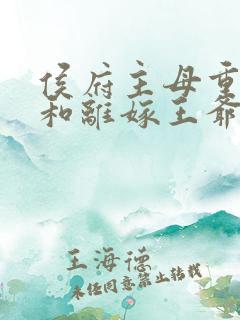 侯府主母重
和離嫁王爺
王海德
未经同意禁止转载